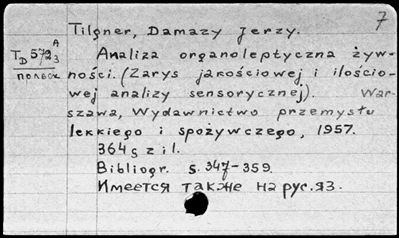 7
Tilgner, Damazy Jerzy.
Analiza organoleptyczna żyw-
ności. (Zarys jakościowej i ilościo-
wej analizy sensorycznej). War-
szawa, Wydawnictwo przemysłu
lekkiego i spożywczego, 1957.
364 s z il.
Bibliogr. s. 347-359.
Имеется также на рус. яз.